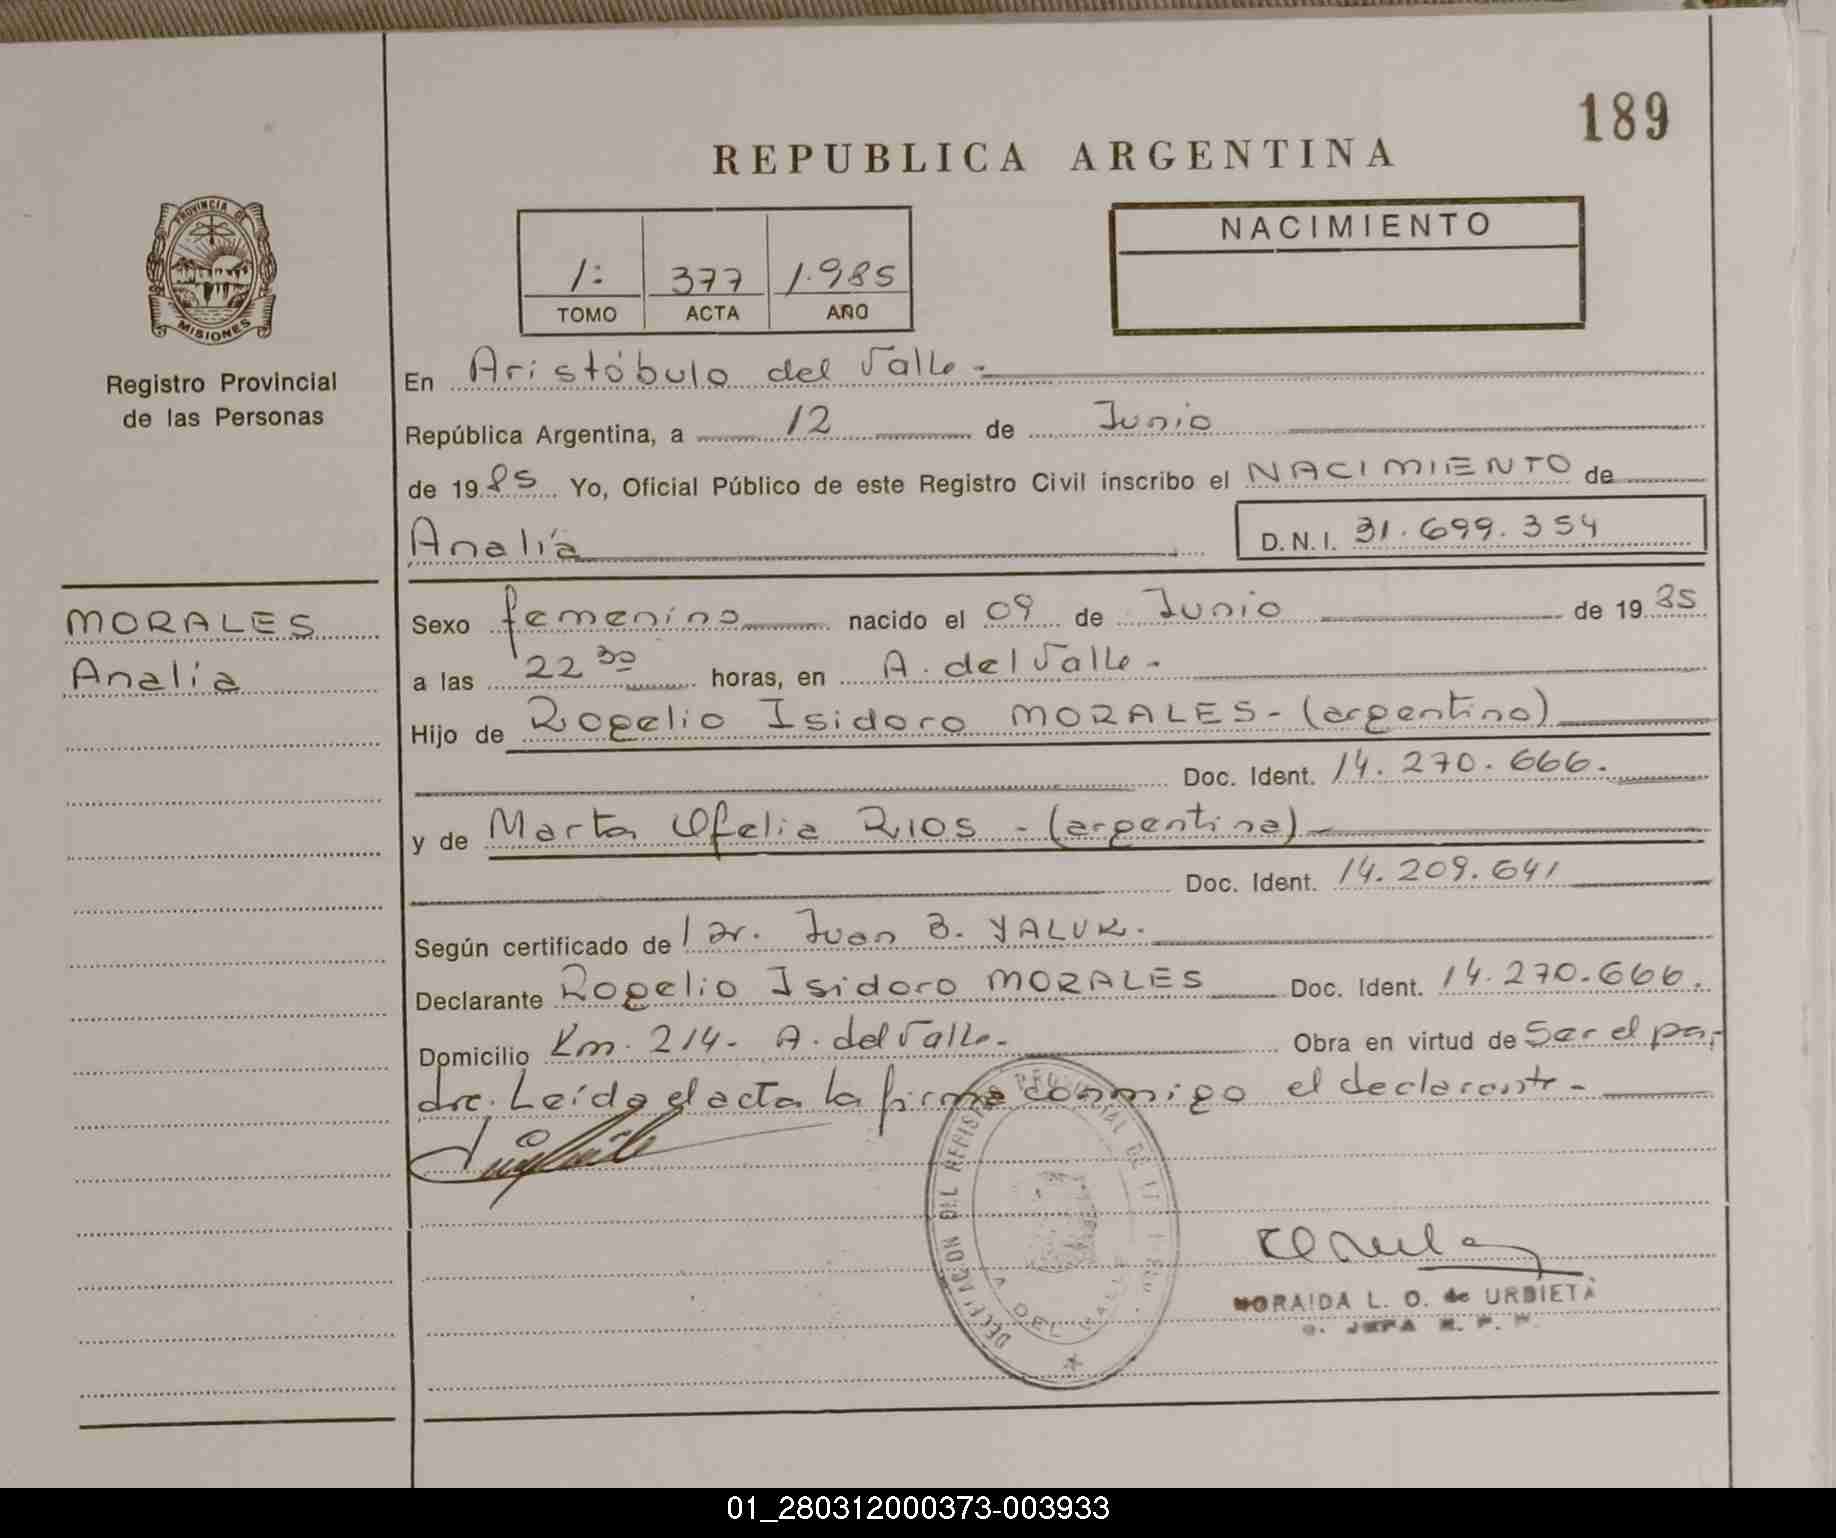 189
REPUBLICA ARGENTINA
PROVINCIA DE
MISIONES
Registro Provincial
de las Personas
1: 377 1.985
TOMO ACTA AÑO
NACIMIENTO
En Aristóbulo del Valle.-
República Argentina, a 12 de Junio
de 1985 Yo, Oficial Público de este Registro Civil inscribo el NACIMIENTO de
Analía
D.N.I. 31.699.354
MORALES
Analía
Sexo femenino nacido el 09 de Junio de 1985
a las 22 30 horas, en A. del Valle.-
Hijo de Rogelio Isidoro MORALES - (argentino)
Doc. Ident. 14.270.666.
y de Marta Ofelia RIOS - (argentina)-
Doc. Ident. 14.209.641
Según certificado de Dr. Juan B. YALUK.
Declarante Rogelio Isidoro MORALES Doc. Ident. 14.270.666.
Domicilio Km. 214- A. del Valle.- Obra en virtud de Ser el pa-
dre. Leída el acta la firma conmigo el declarante-
DEL REGISTRO PROVINCIAL DE
A. DEL VALLE
L. O. de URBIETA
JEFA R. P. P.
01_280312000373-003933